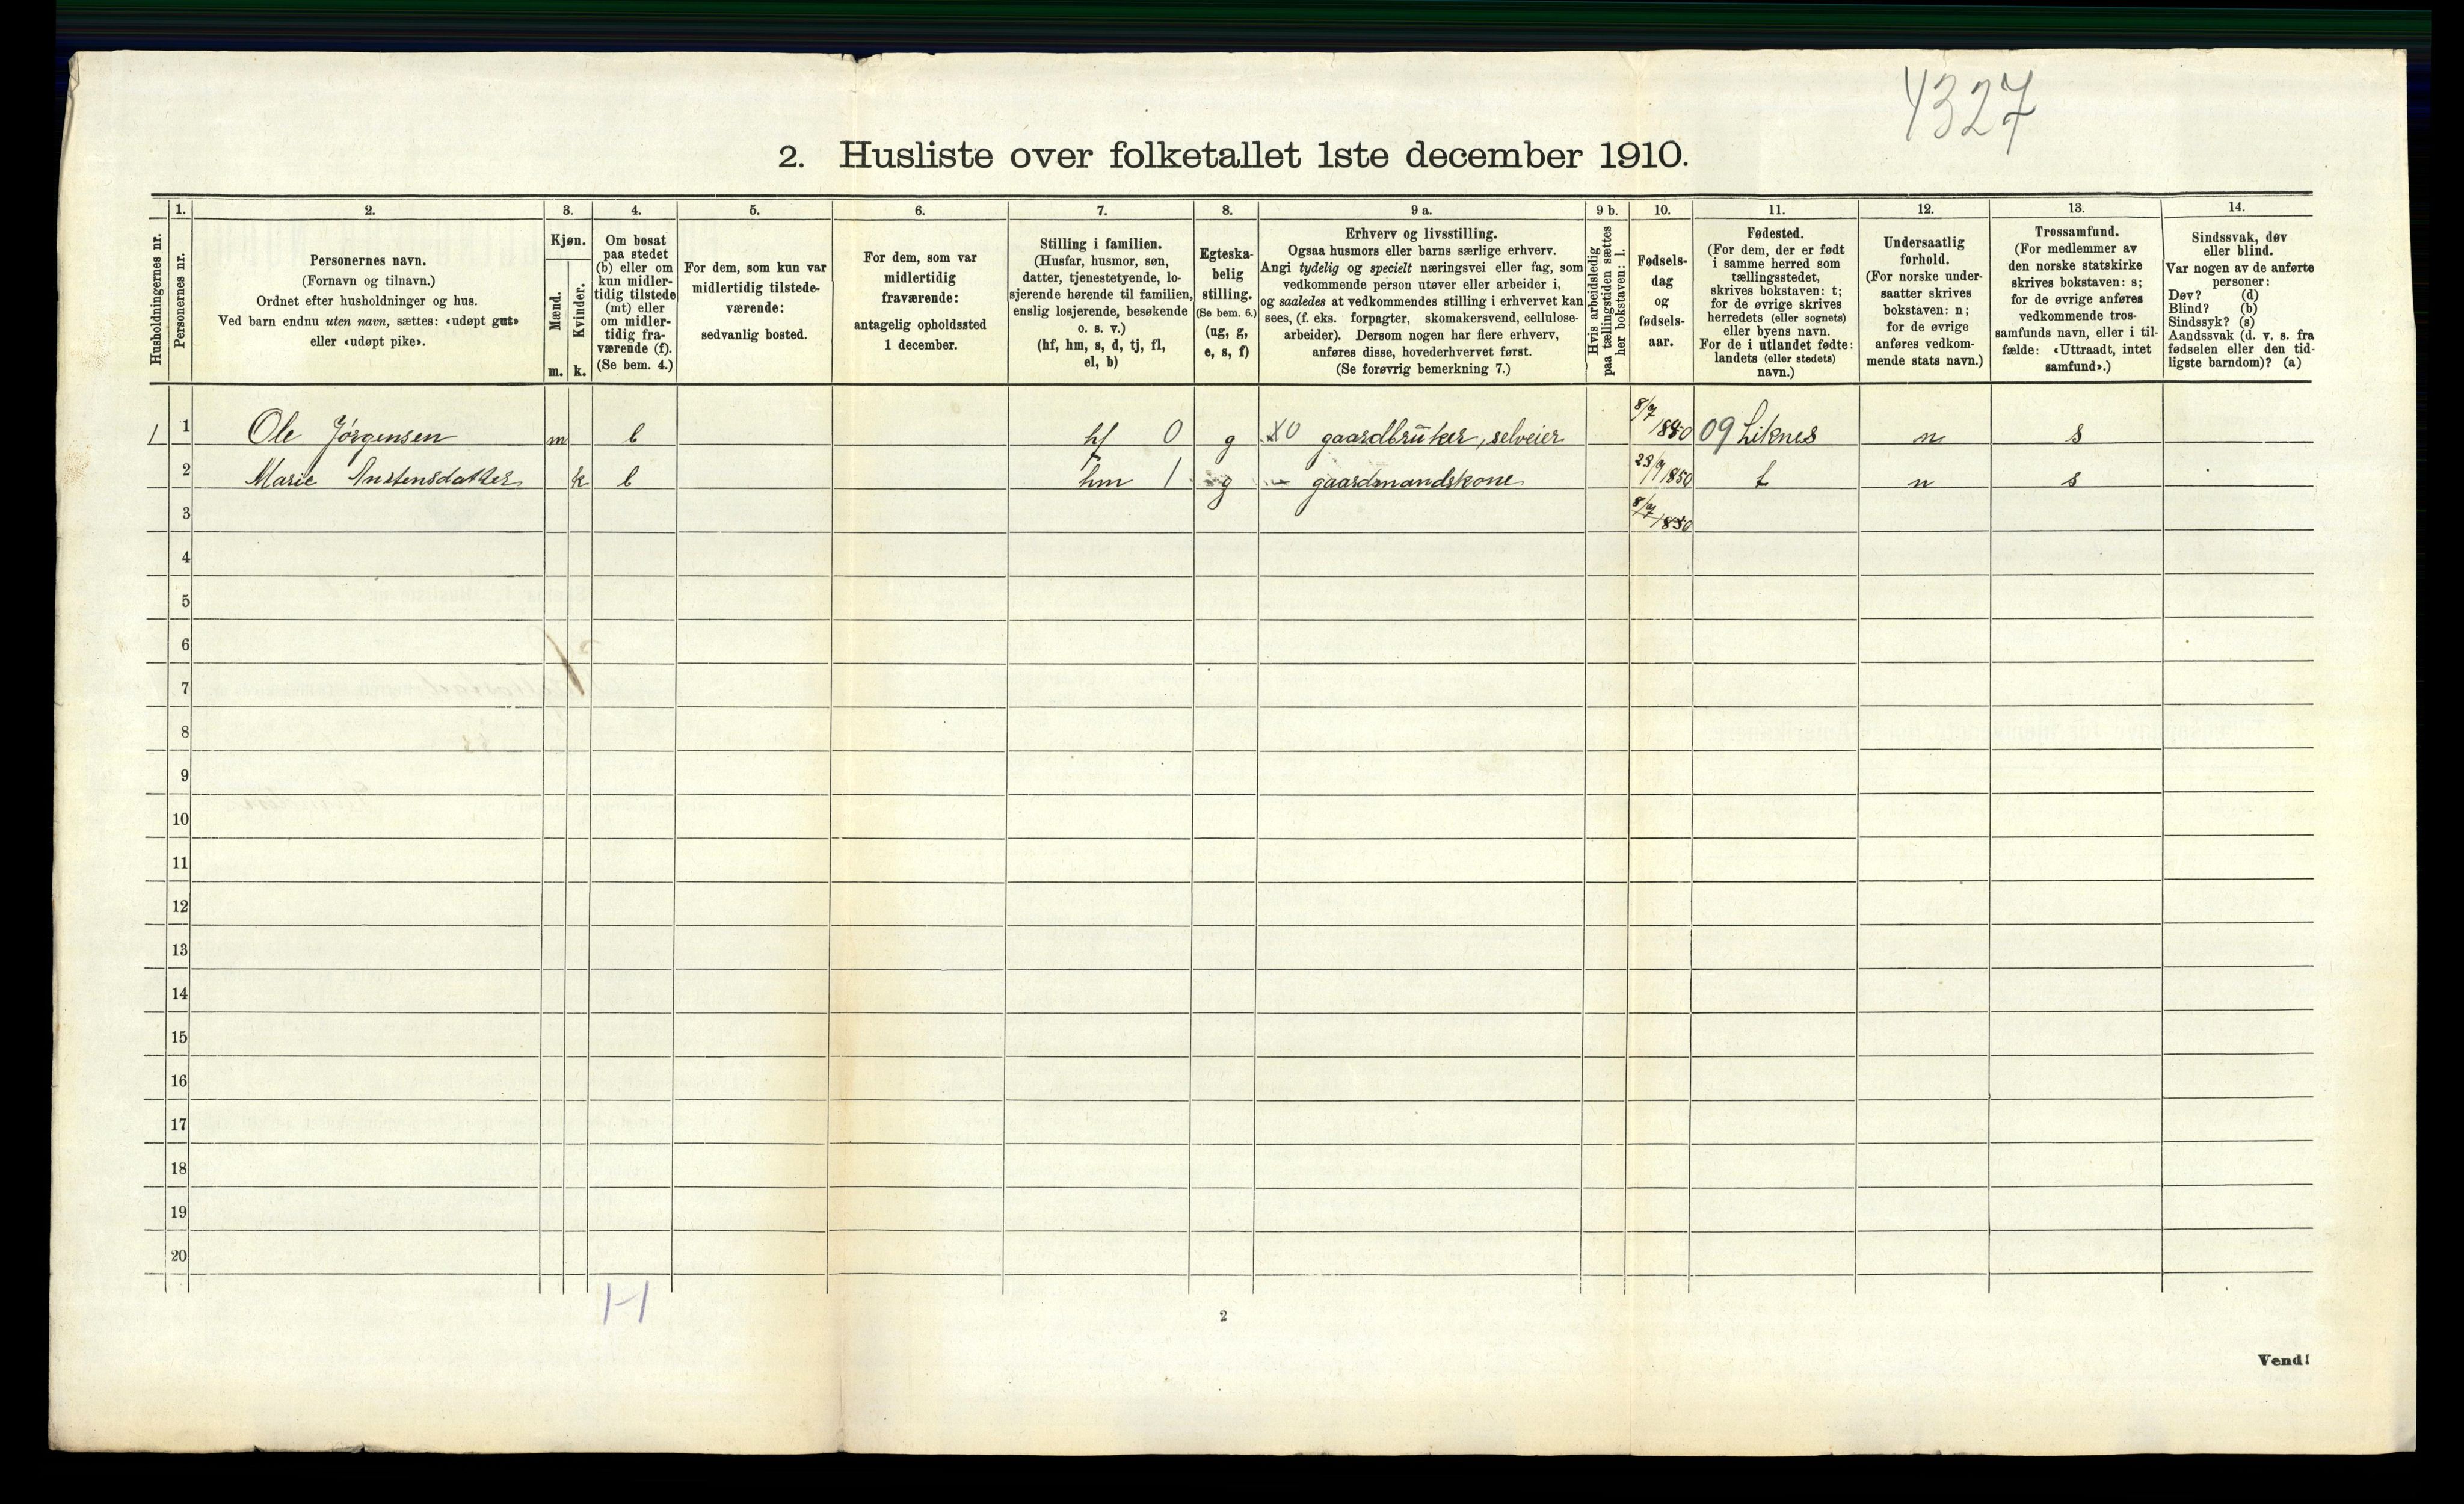 4327
2. Husliste over folketallet 1ste december 1910.
Husholdningernes nr.
1.
Personernes nr.
2.
Personernes navn.
(Fornavn og tilnavn.)
Ordnet efter husholdninger og hus.
Ved barn endnu uten navn, sættes: «udøpt gut»
eller «udøpt pike».
3.
Kjøn.
Mænd.
Kvinder.
m. k.
4.
Om bosat
paa stedet
(b) eller om
kun midler-
tidig tilstede
(mt) eller
om midler-
tidig fra-
værende (f).
(Se bem. 4.)
5.
For dem, som kun var
midlertidig tilstede-
værende:
sedvanlig bosted.
6.
For dem, som var
midlertidig
fraværende:
antagelig opholdssted
1 december.
7.
Stilling i familien.
(Husfar, husmor, søn,
datter, tjenestetyende, lo-
sjerende hørende til familien,
enslig losjerende, besøkende
o. s. v.)
(hf, hm, s, d, tj, fl,
el, b)
8.
Egteska-
belig
stilling.
(Se bem. 6.)
(ug, g,
e, s, f)
9 a.
Erhverv og livsstilling.
Ogsaa husmors eller barns særlige erhverv.
Angi tydelig og specielt næringsvei eller fag, som
vedkommende person utøver eller arbeider i,
og saaledes at vedkommendes stilling i erhvervet kan
sees, (f. eks. forpagter, skomakersvend, cellulose-
arbeider). Dersom nogen har flere erhverv,
anføres disse, hovederhvervet først.
(Se forøvrig bemerkning 7.)
9 b.
Hvis arbeidsledig
paa tællingstiden sættes
her bokstaven: l.
10.
Fødsels-
dag
og
fødsels-
aar.
11.
Fødested.
(For dem, der er født
i samme herred som
tællingsstedet,
skrives bokstaven: t;
for de øvrige skrives
herredets (eller sognets)
eller byens navn.
For de i utlandet fødte:
landets (eller stedets)
navn.)
12.
Undersaatlig
forhold.
(For norske under-
saatter skrives
bokstaven: n;
for de øvrige
anføres vedkom-
mende stats navn.)
13.
Trossamfund.
(For medlemmer av
den norske statskirke
skrives bokstaven: s;
for de øvrige anføres
vedkommende tros-
samfunds navn, eller i til-
fælde: «Uttraadt, intet
samfund».)
14.
Sindssvak, døv
eller blind.
Var nogen av de anførte
personer:
Døv? (d)
Blind? (b)
Sindssyk? (s)
Aandssvak (d. v. s. fra
fødselen eller den tid-
ligste barndom)? (a)
1 1 Ole Jørgensen m b hf 0 g X0 gaardbruker, selveier 8/7 1850 09 Liknes n s
2 Marie k b hm 1 g gaardmandskone 1850 t n s
3 8/7 1850
4
5
6
7
8
9
10
11
12
13
14
15
16
17
18
19
20
1-1
2
Vend!